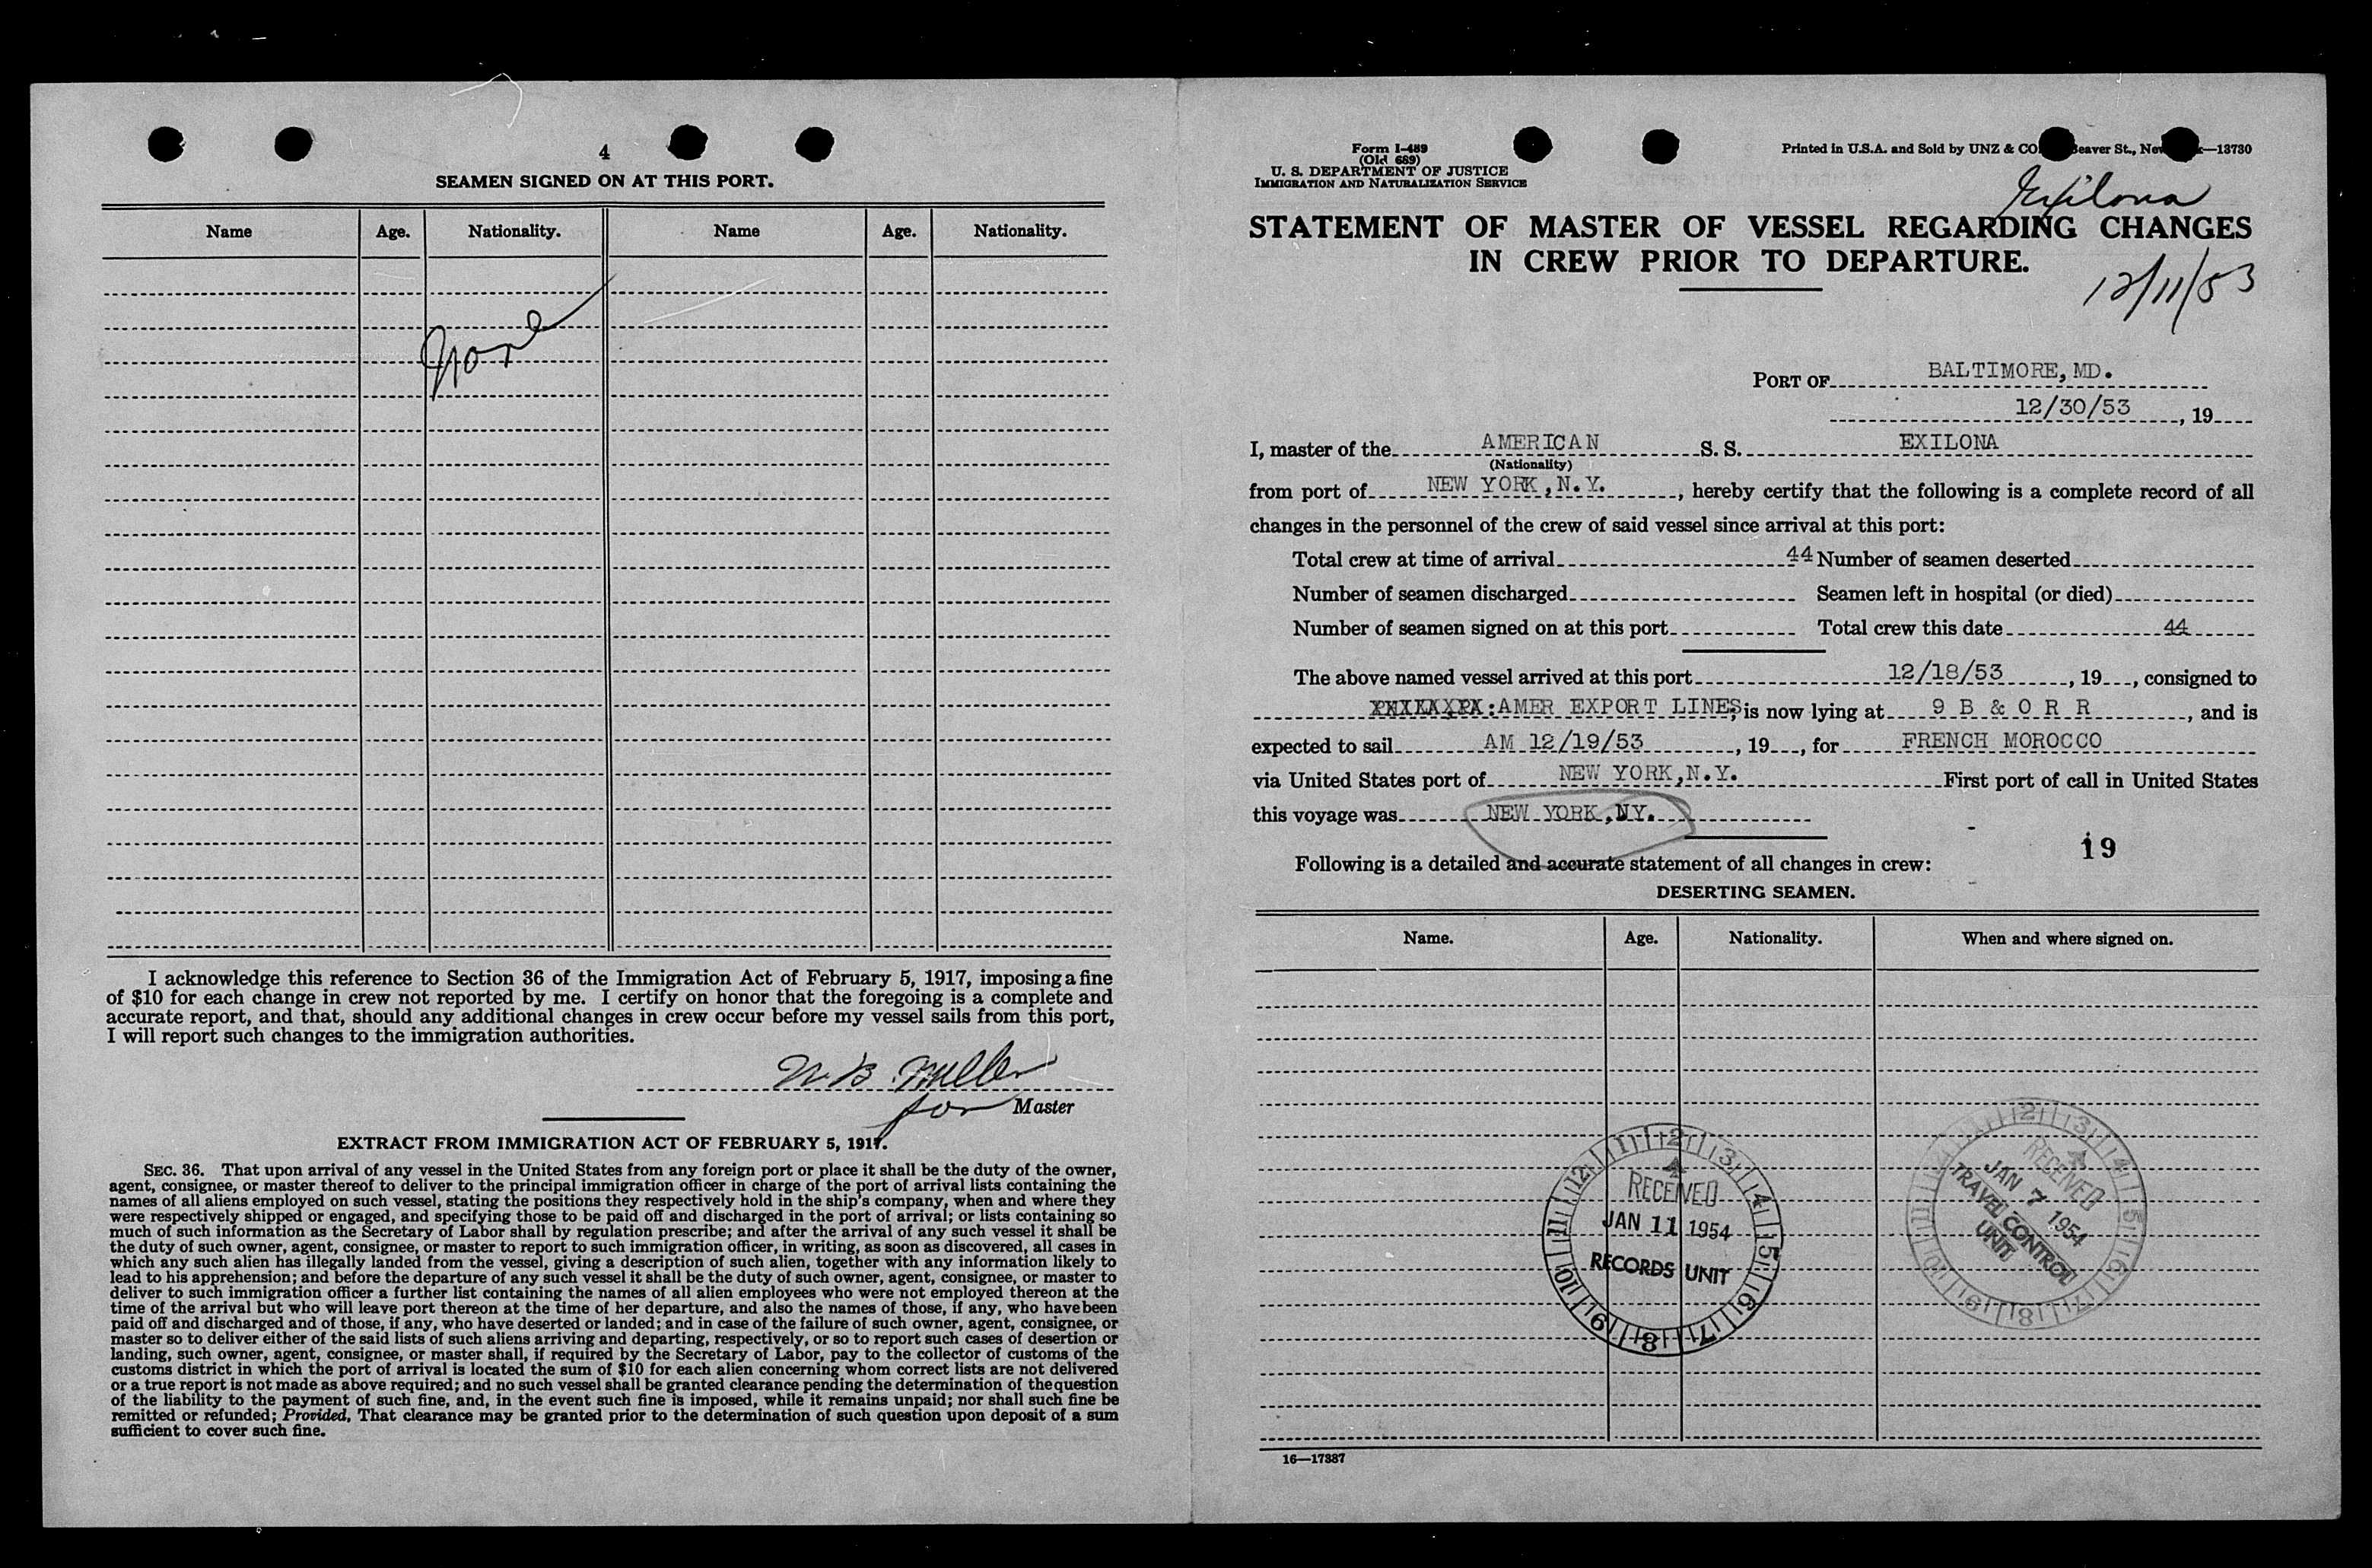 4
SEAMEN SIGNED ON AT THIS PORT.
Name Age. Nationality. Name Age. Nationality.
None
I acknowledge this reference to Section 36 of the Immigration Act of February 5, 1917, imposing a fine
of $10 for each change in crew not reported by me. I certify on honor that the foregoing is a complete and
accurate report, and that, should any additional changes in crew occur before my vessel sails from this port,
I will report such changes to the immigration authorities.
W. B. Miller
for Master
EXTRACT FROM IMMIGRATION ACT OF FEBRUARY 5, 1917.
SEC. 36. That upon arrival of any vessel in the United States from any foreign port or place it shall be the duty of the owner,
agent, consignee, or master thereof to deliver to the principal immigration officer in charge of the port of arrival lists containing the
names of all aliens employed on such vessel, stating the positions they respectively hold in the ship's company, when and where they
were respectively shipped or engaged, and specifying those to be paid off and discharged in the port of arrival; or lists containing so
much of such information as the Secretary of Labor shall by regulation prescribe; and after the arrival of any such vessel it shall be
the duty of such owner, agent, consignee, or master to report to such immigration officer, in writing, as soon as discovered, all cases in
which any such alien has illegally landed from the vessel, giving a description of such alien, together with any information likely to
lead to his apprehension; and before the departure of any such vessel it shall be the duty of such owner, agent, consignee, or master to
deliver to such immigration officer a further list containing the names of all alien employees who were not employed thereon at the
time of the arrival but who will leave port thereon at the time of her departure, and also the names of those, if any, who have been
paid off and discharged and of those, if any, who have deserted or landed; and in case of the failure of such owner, agent, consignee, or
master so to deliver either of the said lists of such aliens arriving and departing, respectively, or so to report such cases of desertion or
landing, such owner, agent, consignee, or master shall, if required by the Secretary of Labor, pay to the collector of customs of the
customs district in which the port of arrival is located the sum of $10 for each alien concerning whom correct lists are not delivered
or a true report is not made as above required; and no such vessel shall be granted clearance pending the determination of the question
of the liability to the payment of such fine, and, in the event such fine is imposed, while it remains unpaid; nor shall such fine be
remitted or refunded; Provided, That clearance may be granted prior to the determination of such question upon deposit of a sum
sufficient to cover such fine.
Form I-489
(Old 689)
U. S. DEPARTMENT OF JUSTICE
IMMIGRATION AND NATURALIZATION SERVICE
Printed in U.S.A. and Sold by UNZ & CO. Beaver St., New —13730
Exilona
STATEMENT OF MASTER OF VESSEL REGARDING CHANGES
IN CREW PRIOR TO DEPARTURE.
12/11/53
PORT OF BALTIMORE, MD.
12/30/53, 19
I, master of the AMERICAN S. S. EXILONA
(Nationality)
from port of NEW YORK, N.Y., hereby certify that the following is a complete record of all
changes in the personnel of the crew of said vessel since arrival at this port:
Total crew at time of arrival 44 Number of seamen deserted
Number of seamen discharged Seamen left in hospital (or died)
Number of seamen signed on at this port Total crew this date 44
The above named vessel arrived at this port 12/18/53, 19, consigned to
:AMER EXPORT LINES; is now lying at 9 B & O R R, and is
expected to sail AM 12/19/53, 19, for FRENCH MOROCCO
via United States port of NEW YORK, N.Y. First port of call in United States
this voyage was NEW YORK, NY.
19
Following is a detailed and accurate statement of all changes in crew:
DESERTING SEAMEN.
Name. Age. Nationality. When and where signed on.
12 1 2 3 4 5 6 7 8 9 10 11
RECEIVED
JAN 11 1954
RECORDS UNIT
2 3 4 5 6 7 8 9 10 11
RECEIVED
JAN 7 1954
TRAVEL CONTROL
UNIT
16—17387